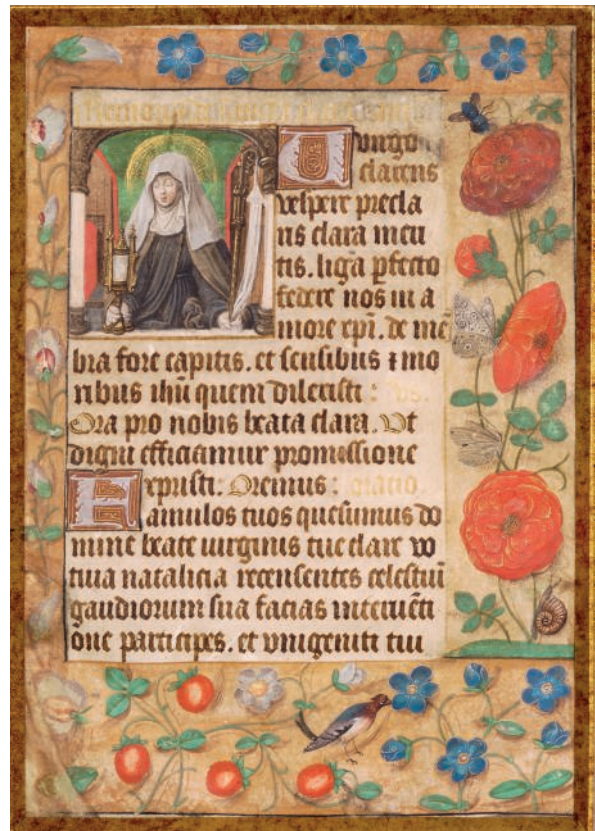 O uirgo
clarens
vespere precla
ris clara meri
tis. liga pfecto
federe nos in a
more xpi. de mē
bra fore capitis. et sensibus ⁊ mo
ribus ihū quem dilexisti : vs.
Ora pro nobis beata clara. Vt
digni efficiamur promissione
xpristi: Oremus: oracio.
Famulos tuos quesumus do
mine beate uirginis tue clare vo
tiua natalicia recensentes celestiū
gaudiorum sua facias interuēti
one participes. et vnigeniti tui